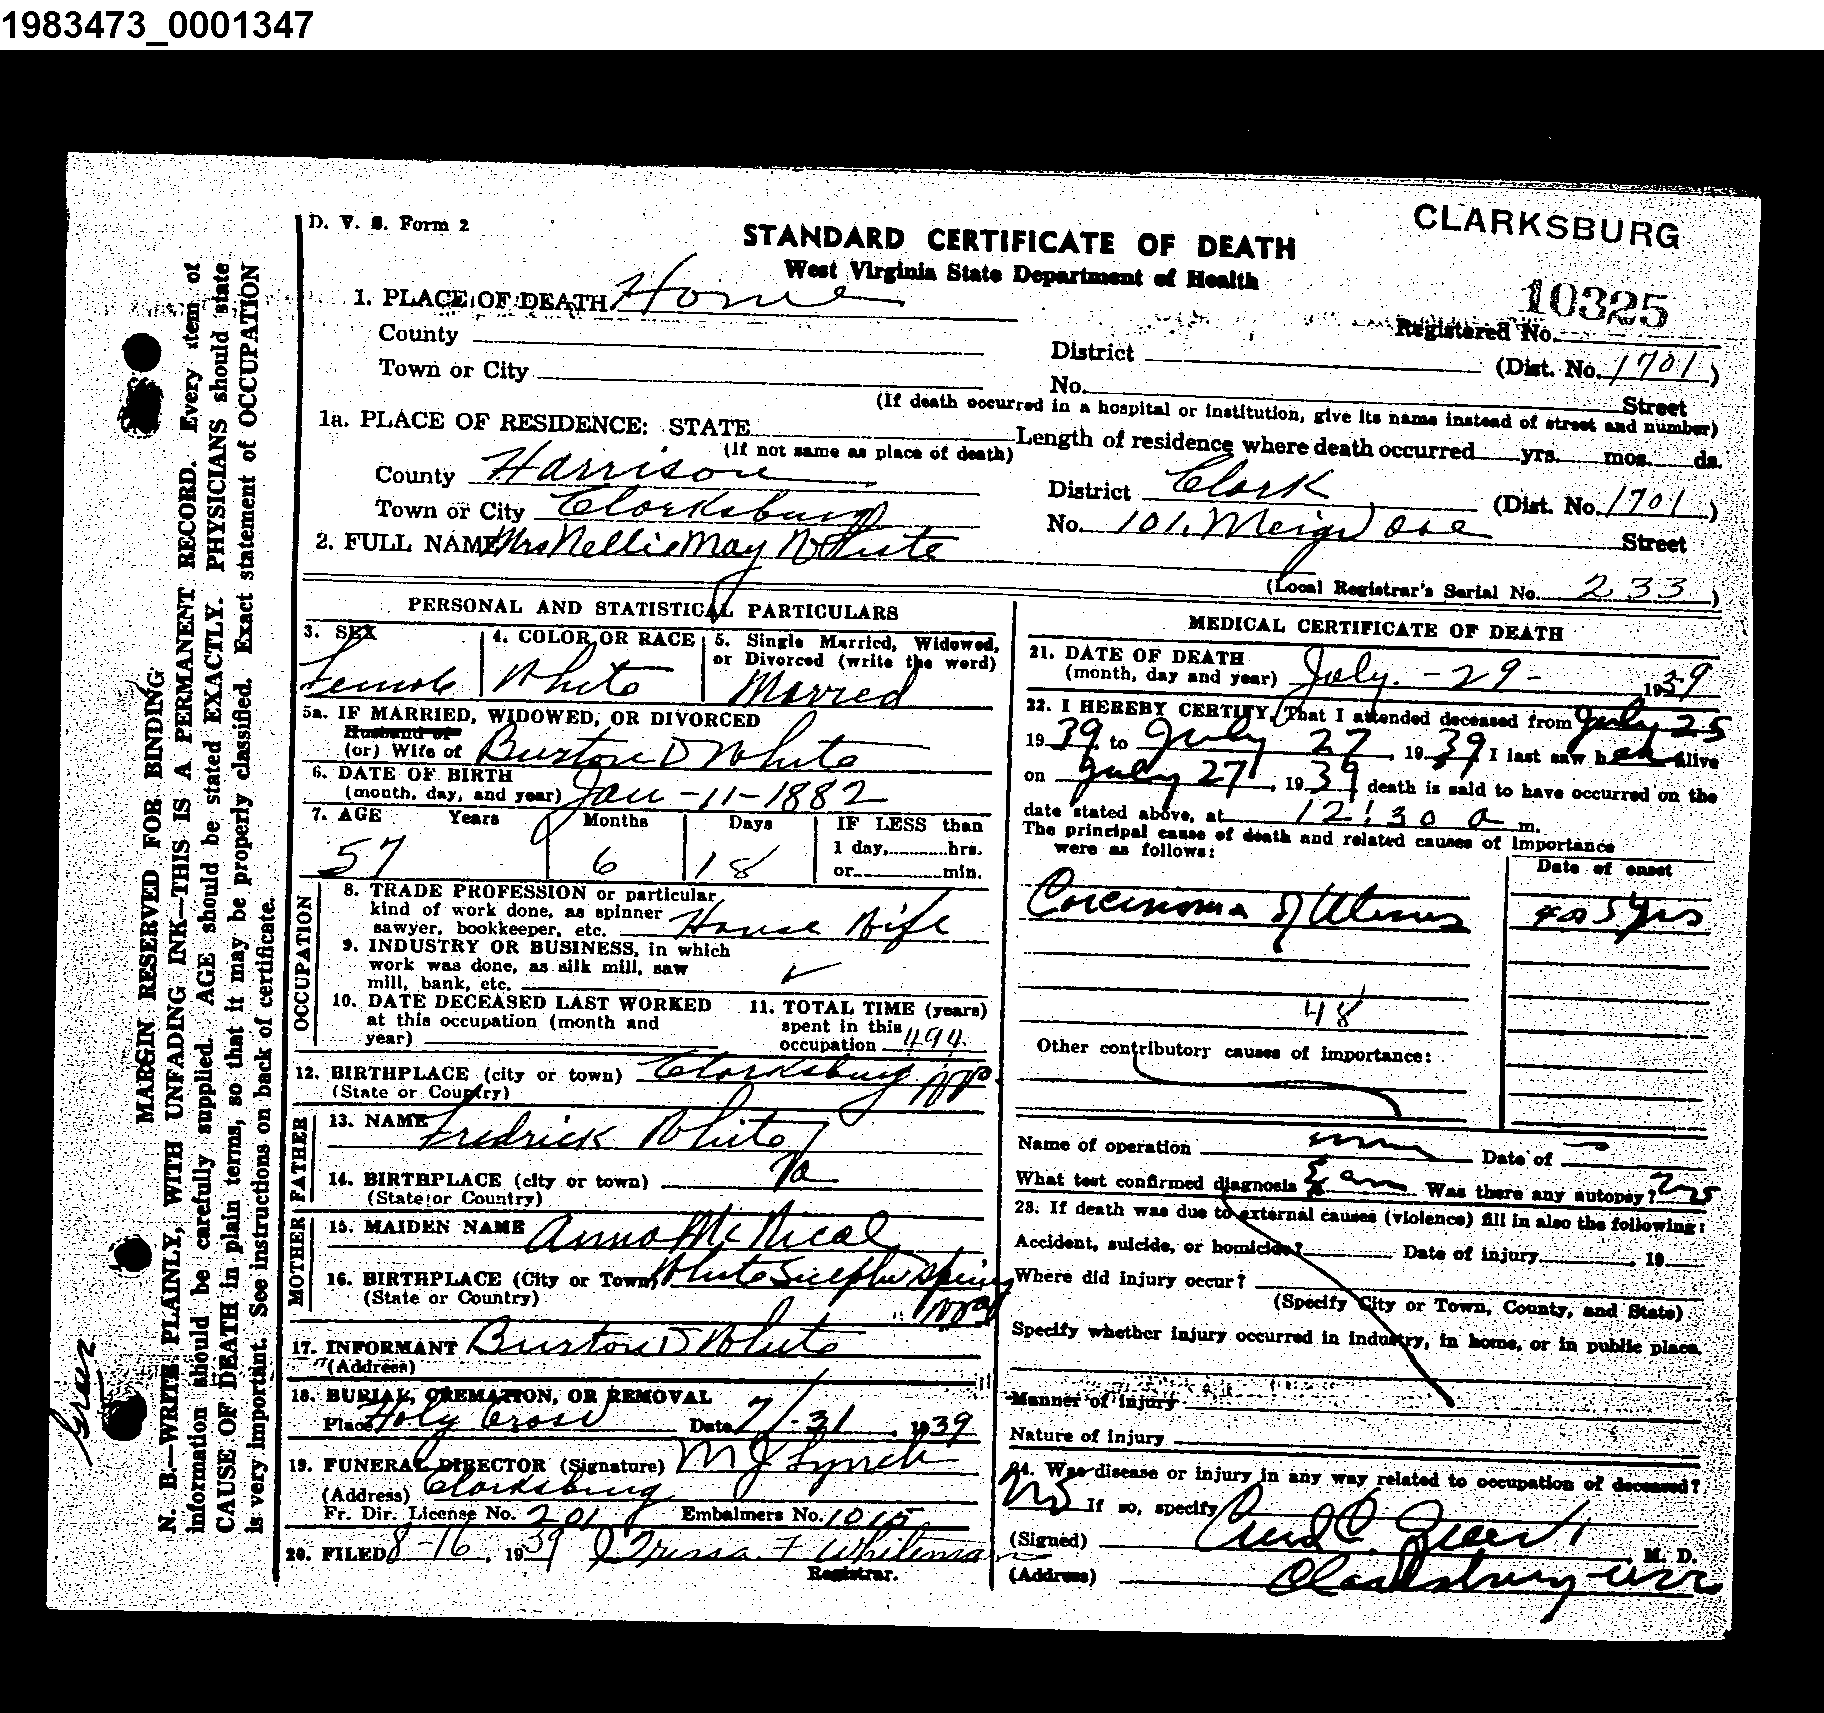 1983473_0001347
D. V. S. Form 2
CLARKSBURG
STANDARD CERTIFICATE OF DEATH
West Virginia State Department of Health
10325
Registered No.
1. PLACE OF DEATH Home
County
District (Dist. No. 1701)
Town or City
No. Street
(If death occurred in a hospital or institution, give its name instead of street and number)
1a. PLACE OF RESIDENCE: STATE
Length of residence where death occurred yrs. mos. ds.
(If not same as place of death)
County Harrison
District Clark (Dist. No. 1701)
Town or City Clarksburg
No. 101 Meigs Ave Street
2. FULL NAME Mrs Nellie May White
(Local Registrar's Serial No. 233)
PERSONAL AND STATISTICAL PARTICULARS
3. SEX
Female
4. COLOR OR RACE
White
5. Single Married, Widowed,
or Divorced (write the word)
Marred
5a. IF MARRIED, WIDOWED, OR DIVORCED
Husband of
(or) Wife of Burton D White
6. DATE OF BIRTH
(month, day, and year) Jan - 11 - 1882
7. AGE Years Months Days
57 6 18
IF LESS than
1 day, hrs.
or min.
OCCUPATION
8. TRADE PROFESSION or particular
kind of work done, as spinner
sawyer, bookkeeper, etc. House Wife
9. INDUSTRY OR BUSINESS, in which
work was done, as silk mill, saw
mill, bank, etc.
10. DATE DECEASED LAST WORKED
at this occupation (month and
year)
11. TOTAL TIME (years)
spent in this
occupation 494
12. BIRTHPLACE (city or town) Clarksburg
(State or Country)
FATHER
13. NAME Fredrick White
14. BIRTHPLACE (city or town) Va
(State or Country)
MOTHER
15. MAIDEN NAME Anna McNical
16. BIRTHPLACE (City or Town) White Sulpher Spring
(State or Country)
17. INFORMANT Burton D White
(Address)
18. BURIAL, CREMATION, OR REMOVAL
Place Holy Cross Date 7/-31 1939
19. FUNERAL DIRECTOR (Signature) M J Lynch
(Address) Clarksburg
Fr. Dir. License No. 201 Embalmers No. 1015
20. FILED 8-16, 1939
Whiteman
Registrar.
MEDICAL CERTIFICATE OF DEATH
21. DATE OF DEATH
(month, day and year) July - 29 - 1939
22. I HEREBY CERTIFY, That I attended deceased from July 25
1939 to July 27, 1939 I last saw her alive
on July 27, 1939 death is said to have occurred on the
date stated above, at 12:30 a m.
The principal cause of death and related causes of importance
were as follows:
Date of onset
Carcinoma of Uterus 4 or 5 yrs
48
Other contributory causes of importance:
Name of operation Date of
What test confirmed diagnosis Was there any autopsy? no
23. If death was due to external causes (violence) fill in also the following:
Accident, suicide, or homicide? Date of injury 19
Where did injury occur?
(Specify City or Town, County, and State)
Specify whether injury occurred in industry, in home, or in public place.
Manner of injury
Nature of injury
24. Was disease or injury in any way related to occupation of deceased?
No If so, specify
(Signed) M. D.
(Address) Clarksburg W Va
MARGIN RESERVED FOR BINDING
N. B.—WRITE PLAINLY, WITH UNFADING INK—THIS IS A PERMANENT RECORD. Every item of
information should be carefully supplied. AGE should be stated EXACTLY. PHYSICIANS should state
CAUSE OF DEATH in plain terms, so that it may be properly classified. Exact statement of OCCUPATION
is very important. See instructions on back of certificate.